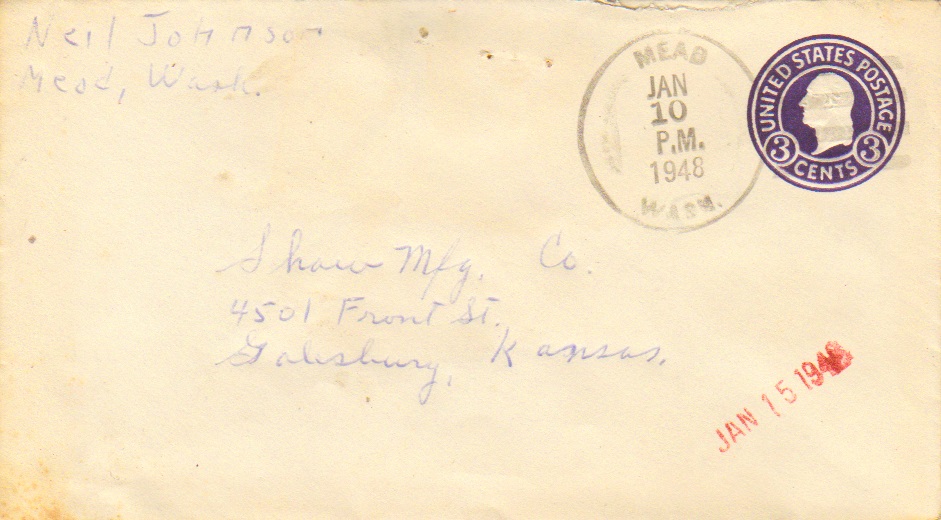 Neil Johnson
Mead, Wash.
MEAD
JAN
10
P.M.
1948
WASH.
UNITED STATES POSTAGE
3 CENTS 3
Shaw Mfg. Co.
4501 Front St.,
Galesburg, Kansas.
JAN 15 1948